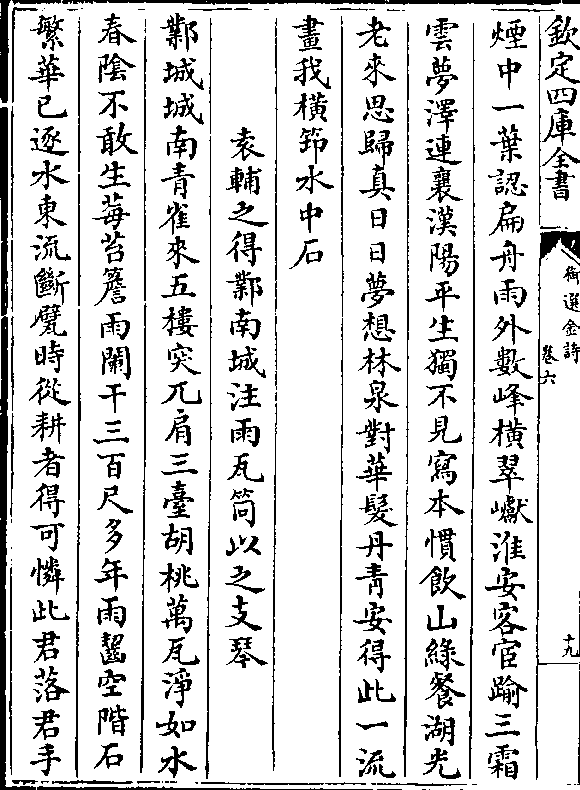 欽定四庫全書
御選金詩
卷六
十九
煙中一葉認扁舟雨外數峰橫翠巘淮安客宦踰三霜
雲夢澤連襄漢陽平生獨不見寫本慣飲山綠餐湖光
老來思歸真日日夢想林泉對華髮丹青安得此一流
畫我橫笻水中石
袁輔之得鄴南城注雨瓦筒以之支琴
鄴城城南青雀來五樓突兀肩三臺胡桃萬瓦淨如水
春陰不敢生莓苔簷雨闌干三百尺多年雨齧空階石
繁華已逐水東流斷甓時從耕者得可憐此君落君手